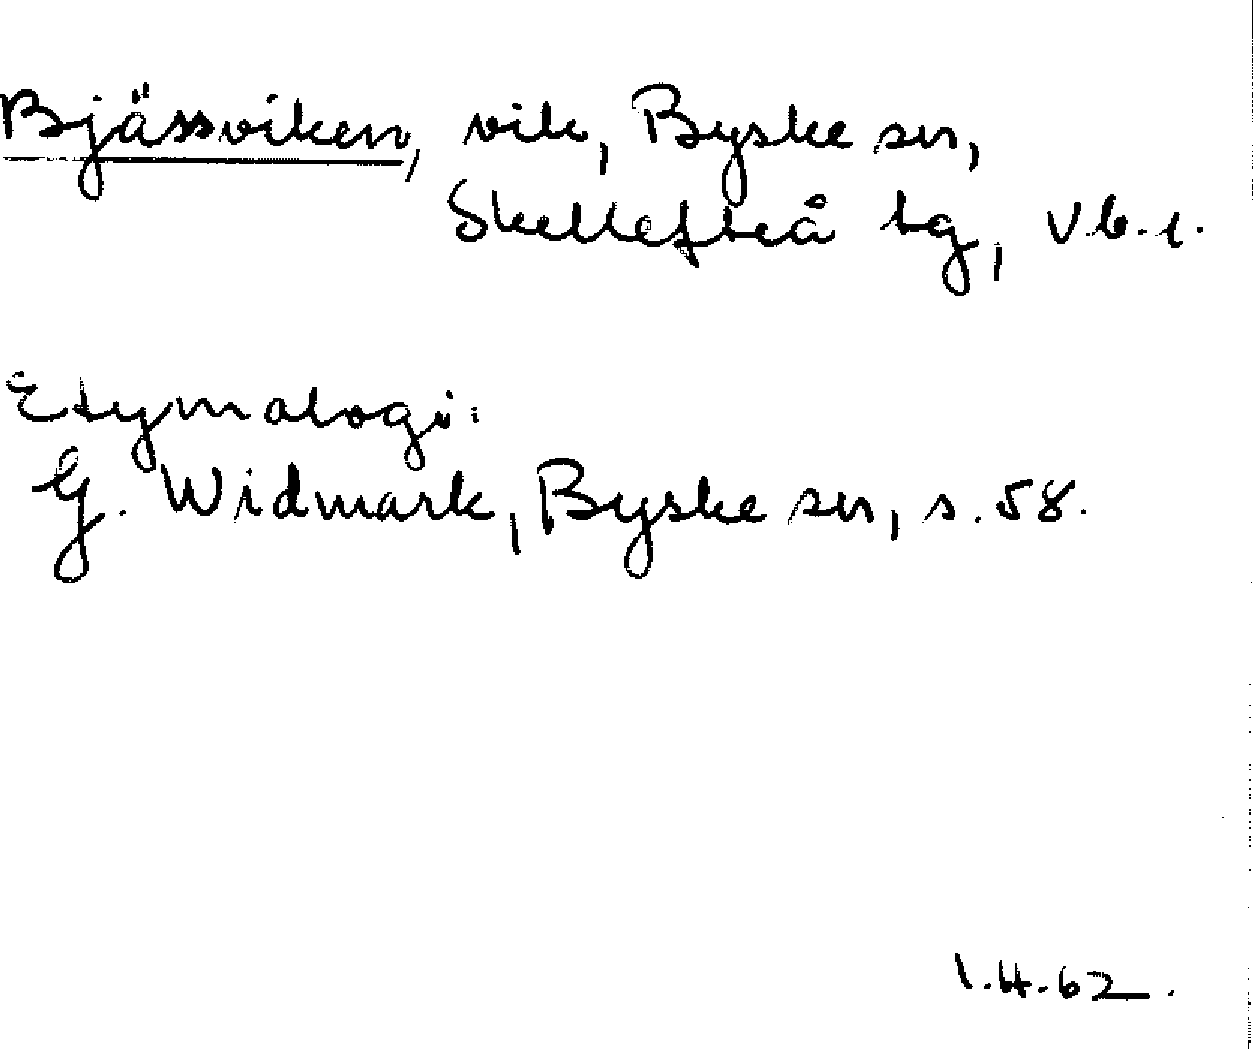 Bjässviken, vik, Byske sn,
Skellefteå tg, Vb.l.
Etymologi:
G. Widmark, Byske sn, s. 58.
1.4.62.